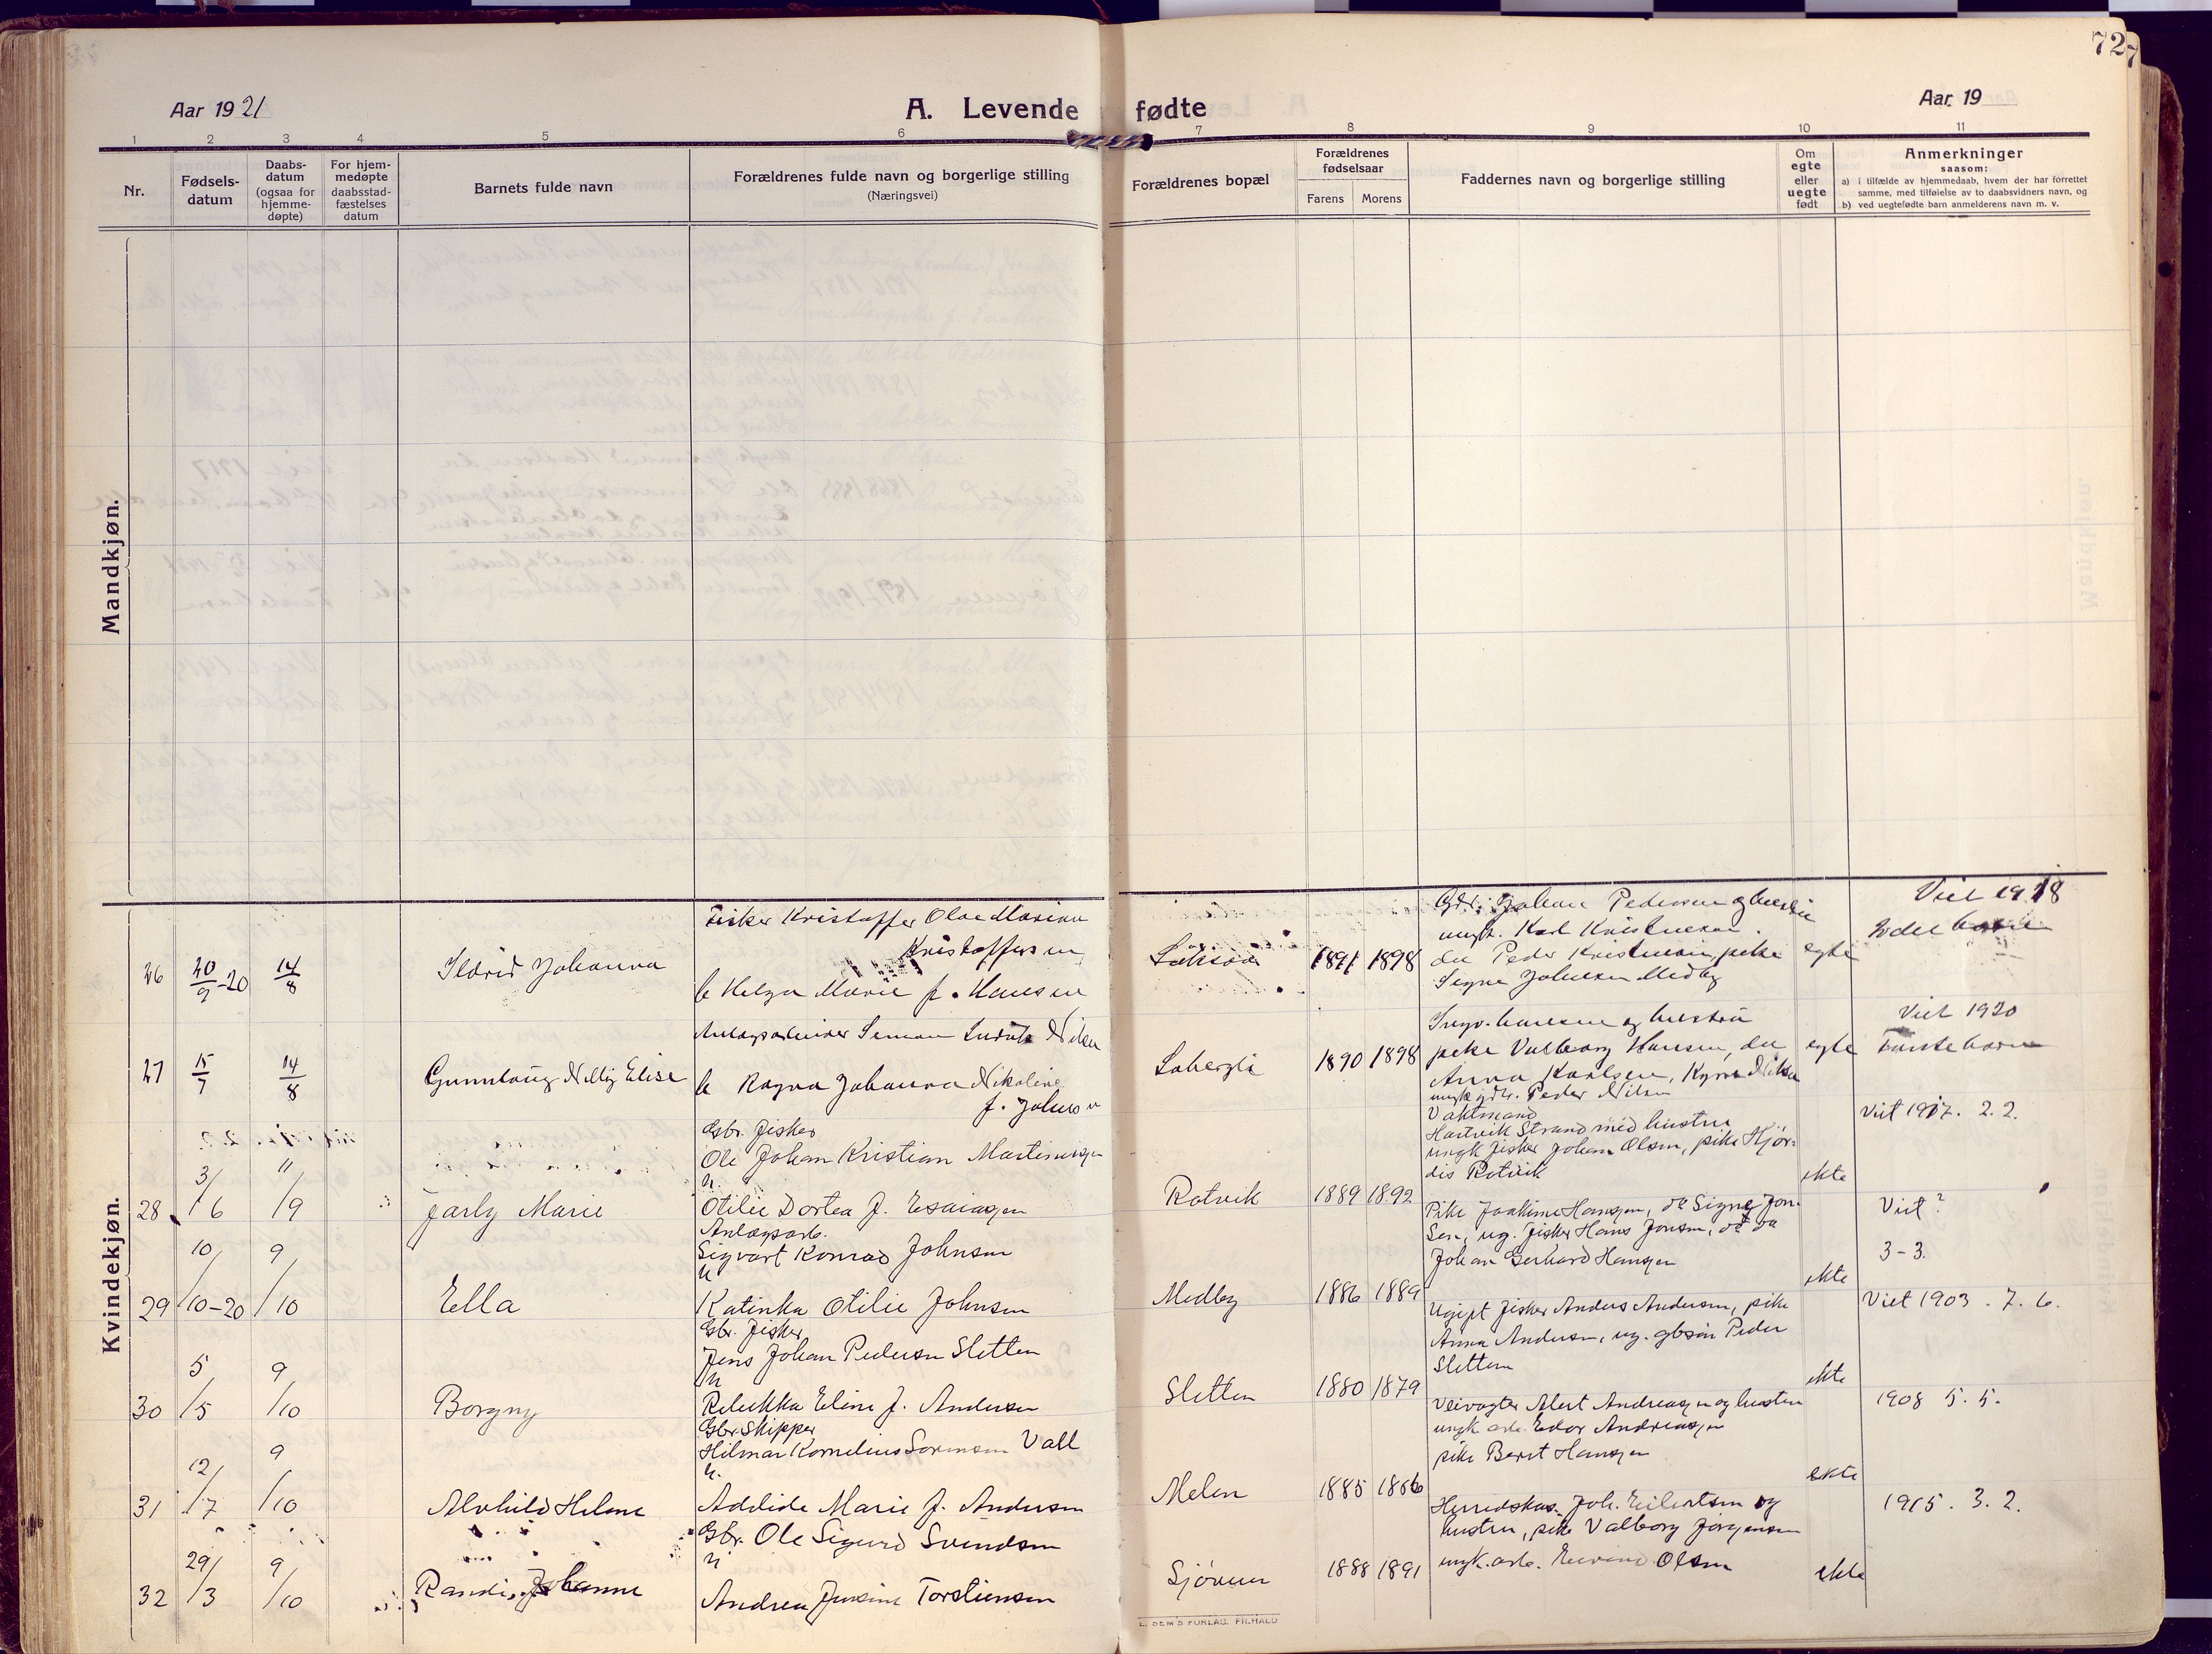 72
Aar 1921
A. Levende fødte
Aar 19
1 2 3 4 5 6 7 8 9 10 11
Nr.
Fødsels-
datum
Daabs-
datum
(ogsaa for
hjemme-
døpte)
For hjem-
medøpte
daabsstad-
fæstelses
datum
Barnets fulde navn
Forældrenes fulde navn og borgerlige stilling
(Næringsvei)
Forældrenes bopæl
Forældrenes
fødselsaar
Farens Morens
Faddernes navn og borgerlige stilling
Om
egte
eller
uegte
født
Anmerkninger
saasom:
a) i tilfælde av hjemmedaab, hvem der har forrettet
samme, med tilføielse av to daabsvidners navn, og
b) ved uegtefødte barn anmelderens navn m. v.
Mandkjøn.
Kvindekjøn.
26 20/9-20 14/8
Ildrid Johanna
Fisker Kristoffer Olav Marian
Kristoffersen
h Helga Marie f. Hansen
1891 1898
Gbr. Johan Pedersen og hustru
ungk. Karl Kristensen
du Peder Kristensen, pike
Signe Johnsen Medby
egte
Viet 1918
2det barn
27 15/7 14/8
Gunnlaug Nelly Elise
Anlægsarbeider Simon Ludvik Nilsen
h Ragna Johanna Nikoline
f. Johnsen
Labergli
1890 1898
Ingv. Hansen og hustru
pike Valborg Hansen, du
Anna Karlsen, Nilsen
Peder Nilsen
egte
Viet 1920
Første barn
28 3/6 11/9
Jarly Marie
Gbr. fisker
Ole Johan Kristian Martinusen
h.
Otilie Dortea f. Esaiasen
Rotvik
1889 1892
Vaktmand
Hartvik Strand med hustru
ungk fisker Johan Olsen, pike Hjør-
dis Rotvik
ekte
Viet 1917. 2.2.
29 10/10-20 9/10
Ella
Anlægsarb.
Sigvart Konrad Johnsen
h
Katinka Otilie Johnsen
Medby
1886 1889
Pike Joakime Hansen, do Signe Jon-
sen, ug. fisker Hans Jonsen, do do
Johan Gerhard Hansen
ekte
Viet?
3-3.
30 5/5 9/10
Borgny
Gbr. fisker
Jens Johan Pedersen Sletten
h
Rebekka Eline f. Andersen
Sletten
1880 1879
Ugift fisker Anders Andersen, pike
Anna Andersen, ug. gbsøn Peder
Sletten
ekte
Viet 1903. 7. 6.
31 12/7 9/10
Alvhild Helene
Gbr. Skipper
Hilmar Kornelius Sørensen Vall
h.
Adelide Marie f. Andersen
Melen
1885 1886
Veivogter Alert Andreassen og hustru
ungk arb. Edor Andreassen
pike Berit Hansen
ekte
1908 5. 5.
32 29/3 9/10
Randi Johanne
Gbr. Ole Sigurd Svendsen
h
Andrea Jensine Torstensen
Sjøveien
1888 1891
Herredskas. Joh. Eilertsen og
hustru, pike Valborg Jørgensen
ungk. arb. Olsen
ekte
1915. 3. 2.
SEM'S FORLAG. FR.HALD